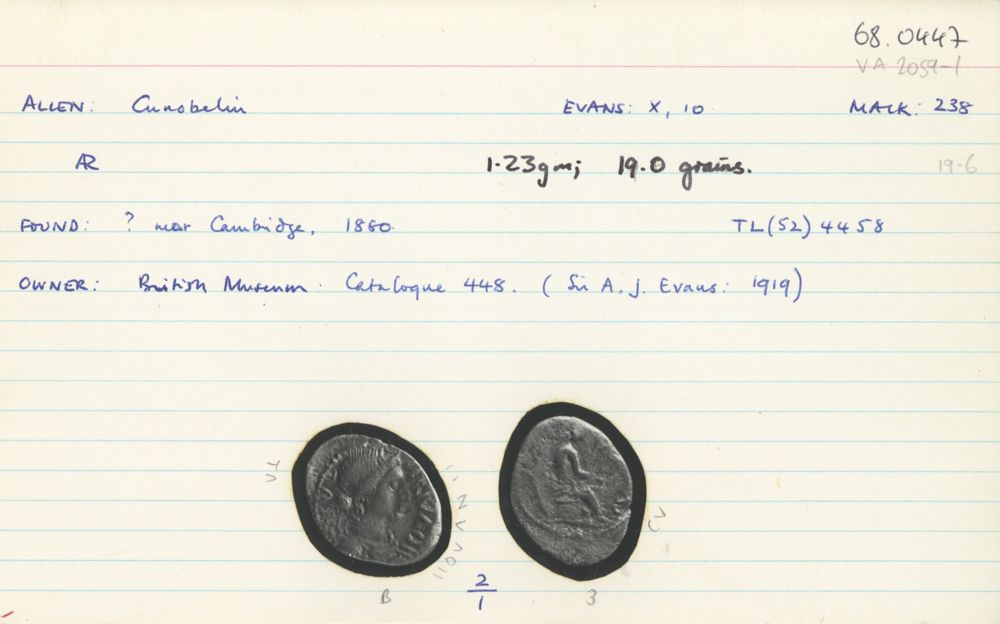 68.0447
VA 2059-1
ALLEN: Cunobelin EVANS: X, 10 MACK: 238
AR 1.23gm; 19.0 grains. 19.6
FOUND: ? near Cambridge, 1860. TL(52) 4458
OWNER: British Museum. Catalogue 448. (Sir A. J. Evans: 1919)
CV
B 2/1 3